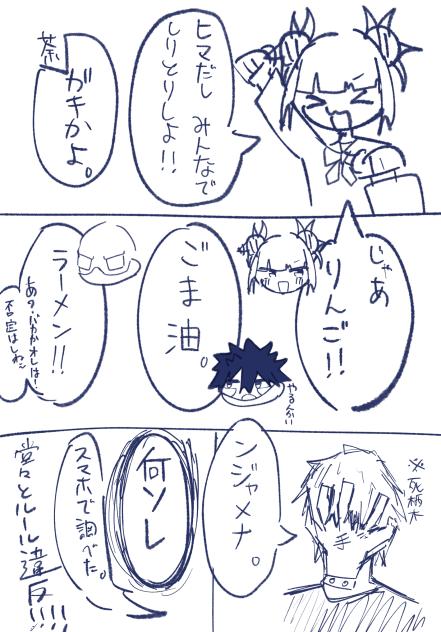 ヒマだし みんなで
しりとりしよ!!
荼
ガキかよ。
じゃあ
りんご!!
ごま油。
やるんかい
ラーメン!!
あっ、バカかオレは!
※死柄木
手
ンジャメナ。
何ソレ
スマホで調べた。
堂々とルール違反!!!!